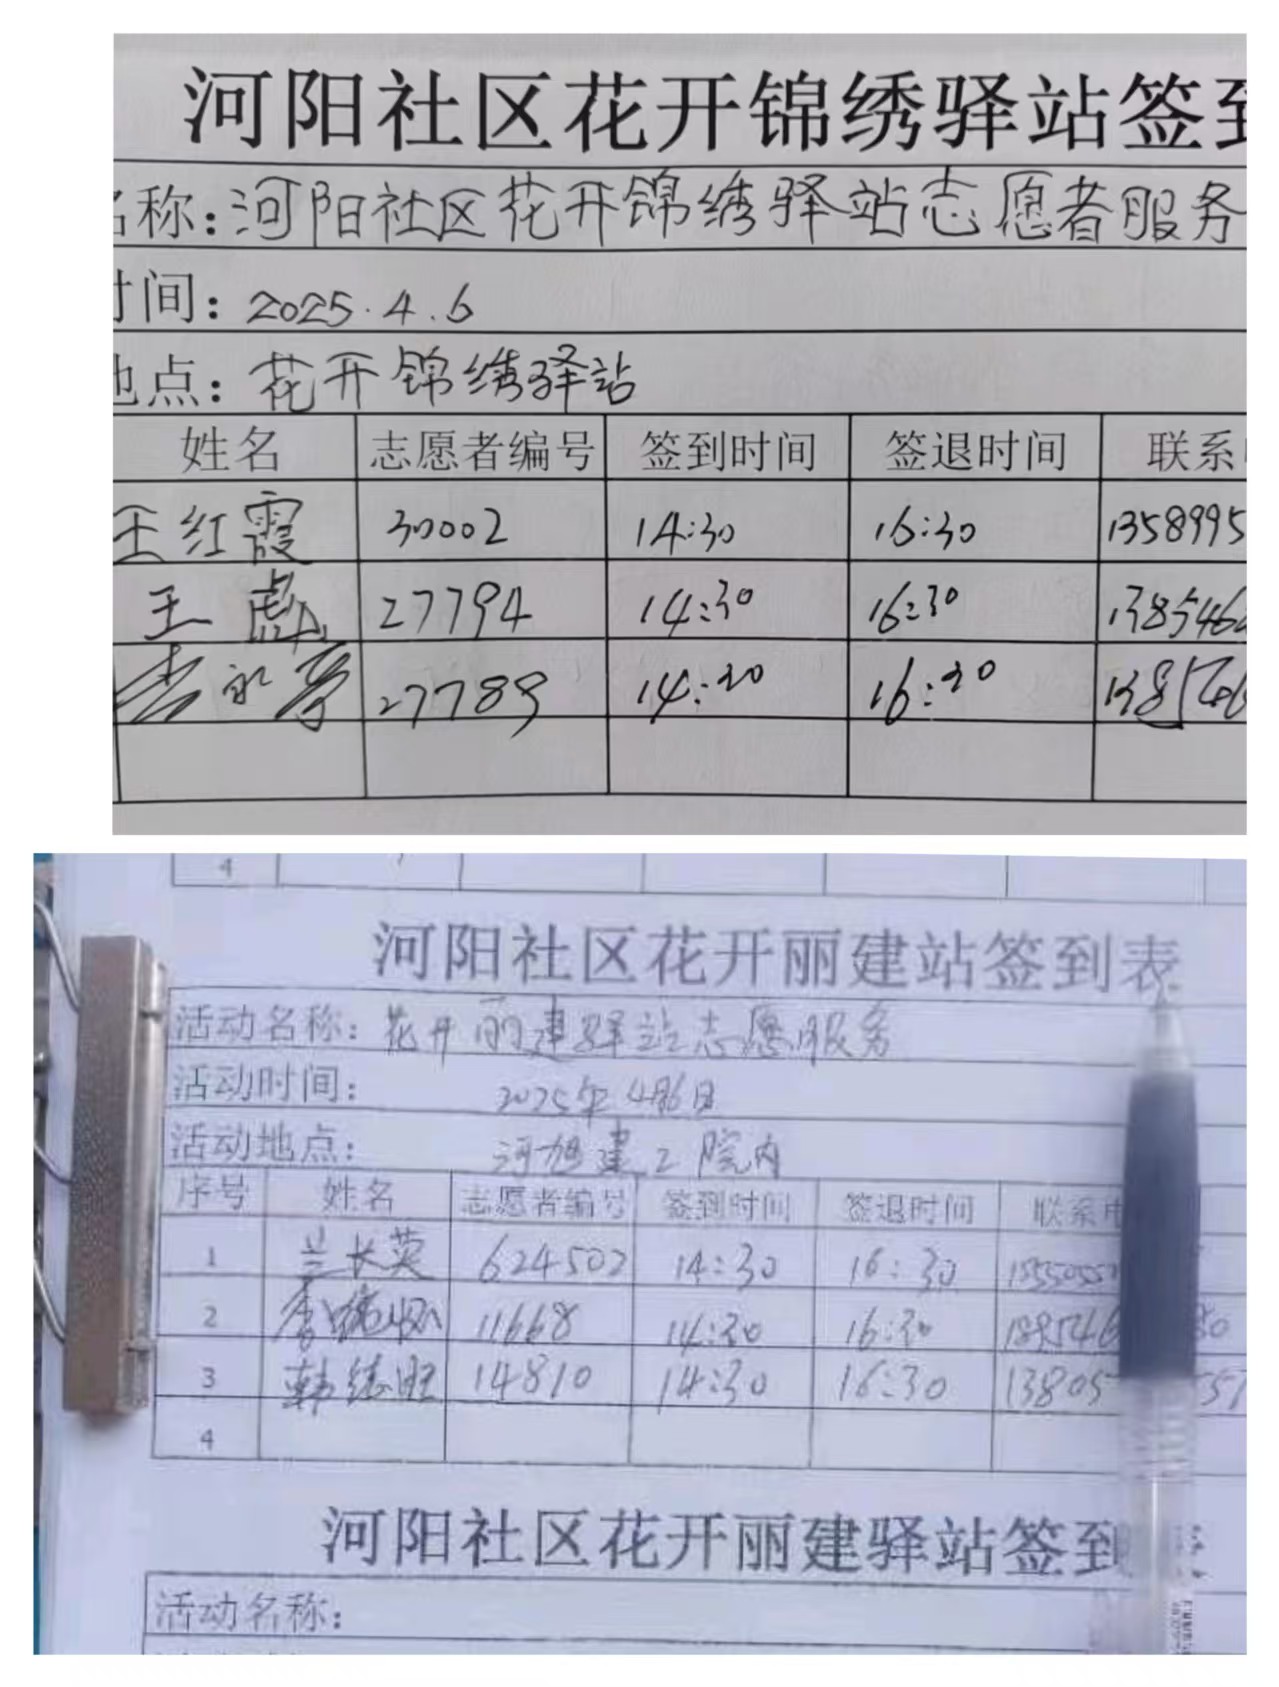 河阳社区花开锦绣驿站签到
名称:河阳社区花开锦绣驿站志愿者服务
时间:2025.4.6
地点:花开锦绣驿站
姓名 志愿者编号 签到时间 签退时间 联系
王红霞 30002 14:30 16:30 1358995
王彪 27794 14:30 16:30 138546
27789 14:30 16:30
4
河阳社区花开丽建站签到表
活动名称:花开丽建驿站志愿服务
活动时间: 2025年4月6日
活动地点: 河旭建工院内
序号 姓名 志愿者编号 签到时间 签退时间 联系电
1 兰长英 624502 14:30 16:30
2 11668 14:30 16:30
3 韩 14810 14:30 16:30 13805
4
河阳社区花开丽建驿站签到
活动名称: